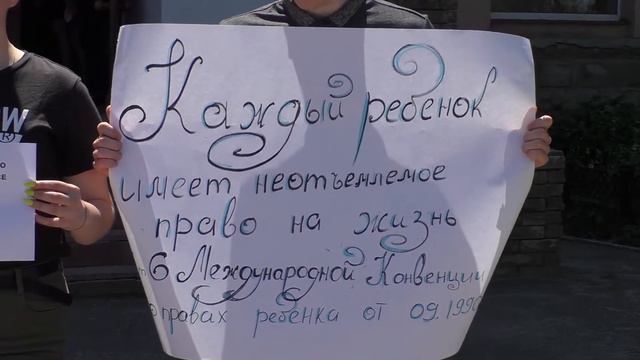 Каждый ребенок
имеет неотъемлемое
право на жизнь
6 Международной Конвенции
о правах ребёнка от 09.1990
W